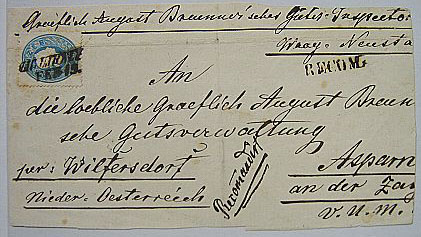 Graeflich August Breunner'sches Guter-Inspector
Waag-Neusta
RECOM.
An
die loebliche Graeflich August Breun
sche Gutsverwaltung
per: Wilfersdorf
Asparn
Nieder-Oesterreich
an der Za
v. U. M.